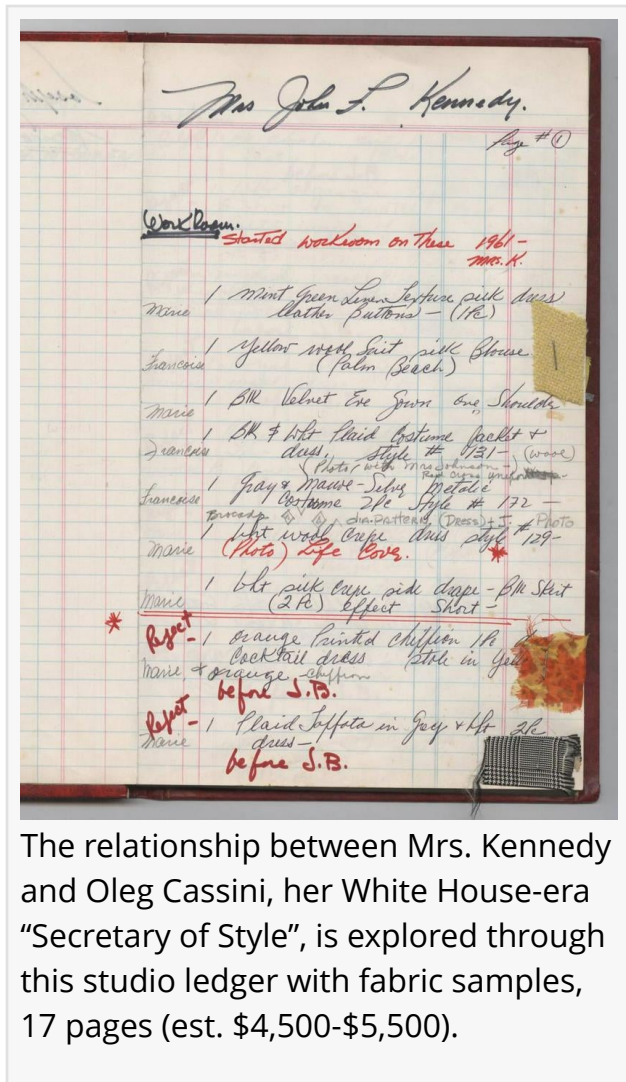 Mrs John F. Kennedy.
Page # 1
WorkRoom.
Started workroom on These 1961-
Mrs. K.
1 mint green Linen Texture silk dress
Marie leather Buttons - (1Pc)
1 Yellow wool Suit silk Blouse
Francoise (Palm Beach)
1
1 Blk Velvet Eve Gown one Shoulder
Marie
1 Blk & Wht Plaid Costume Jacket +
Francoise dress, style # 131- (wool)
(Photo, with Mrs Johnson-)
Red Cross Uniform
1 Gray & Mauve-Silver Metalic
Francoise Costume 2Pc Style # 172 -
Brocade dia. Pattern (Dress) + J. Photo
1 wht wool crepe dress style # 129-
Marie (Photo) Life Cover. *
1 Wht silk crepe side drape - Blk Skirt
Marie (2 Pc) effect Short -
*
Reject - 1 orange Printed chiffon 1Pc
Cocktail dress Stole in
Marie + orange chiffon
before J.B.
Reject - 1 Plaid Taffata in Gray + Wht 2Pc
Marie dress-
before J.B.
The relationship between Mrs. Kennedy
and Oleg Cassini, her White House-era
“Secretary of Style”, is explored through
this studio ledger with fabric samples,
17 pages (est. $4,500-$5,500).